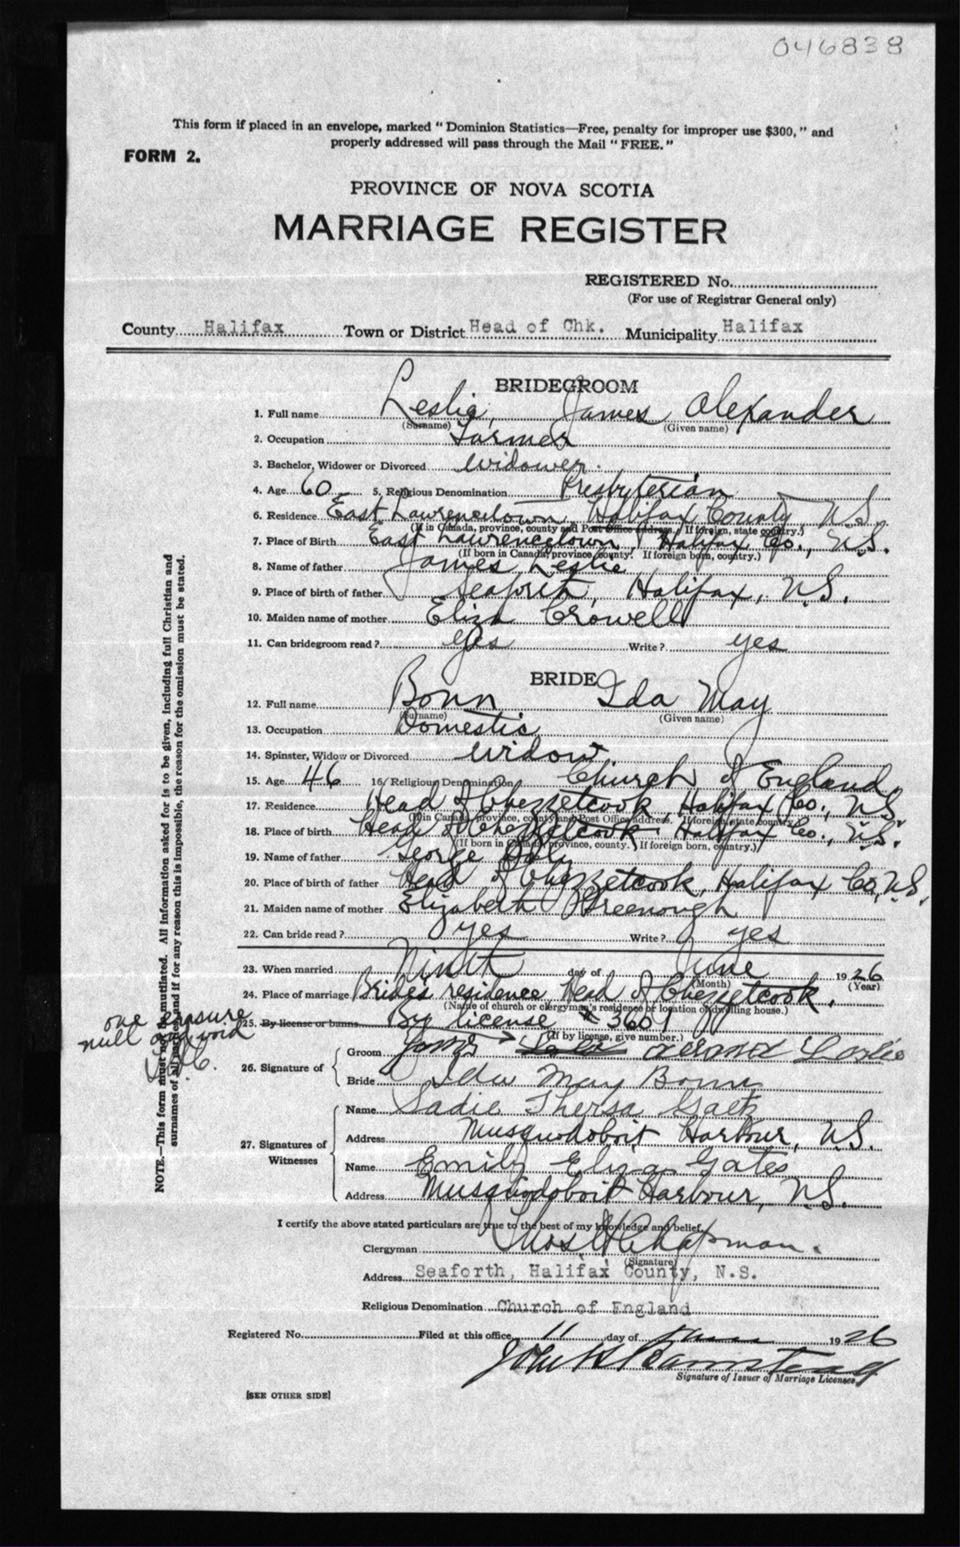 046838
This form if placed in an envelope, marked "Dominion Statistics—Free, penalty for improper use $300," and
properly addressed will pass through the Mail "FREE."
FORM 2.
PROVINCE OF NOVA SCOTIA
MARRIAGE REGISTER
REGISTERED No.
(For use of Registrar General only)
County Halifax Town or District Head of Chk. Municipality Halifax
BRIDEGROOM
1. Full name Leslie, James Alexander
(Surname) (Given name)
2. Occupation Farmer
3. Bachelor, Widower or Divorced widower.
4. Age 60 5. Religious Denomination Presbyterian
6. Residence East Lawrencetown, Halifax County, N.S.
(If in Canada, province, county and Post Office address. If foreign, state country.)
7. Place of Birth East Lawrencetown, Halifax Co., N.S.
(If born in Canada, province, county. If foreign born, country.)
8. Name of father James Leslie
9. Place of birth of father Seaforth, Halifax, N.S.
10. Maiden name of mother Eliza Crowell
11. Can bridegroom read? yes Write? yes
BRIDE
12. Full name Bonn Ida May
(Surname) (Given name)
13. Occupation Domestic
14. Spinster, Widow or Divorced widow
15. Age 46 16. Religious Denomination Church of England
17. Residence Head of Chezzetcook, Halifax Co., N.S.
(If in Canada, province, county and Post Office address. If foreign, state country.)
18. Place of birth Head of Chezzetcook Halifax Co., N.S.
(If born in Canada, province, county. If foreign born, country.)
19. Name of father George
20. Place of birth of father Head of Chezzetcook, Halifax Co, N.S.
21. Maiden name of mother Elizabeth Greenough
22. Can bride read? yes Write? yes
23. When married Ninth day of June 1926
(Month) (Year)
24. Place of marriage Bride's residence, Head of Chezzetcook.
(Name of church or clergyman's residence or location of dwelling house.)
25. By license or banns By license # 3601
(If by license, give number.)
one erasure
null and void
26. Signature of
Groom James Leslie
Bride Ida May Bonn
27. Signatures of Witnesses
Name Sadie Thersa Gaetz
Address Musquodoboit Harbour, N.S.
Name Emily Eliza Gates
Address Musquodoboit Harbour, N.S.
I certify the above stated particulars are true to the best of my knowledge and belief.
Clergyman Thos. H Chapman.
(Signature)
Address Seaforth, Halifax County, N.S.
Religious Denomination Church of England
Registered No. Filed at this office, 11 day of June 1926
John H Bannistead
Signature of Issuer of Marriage Licenses
[SEE OTHER SIDE]
NOTE.—This form must not be mutilated. All information asked for is to be given, including full Christian and
surnames of all parties and if for any reason this is impossible, the reason for the omission must be stated.